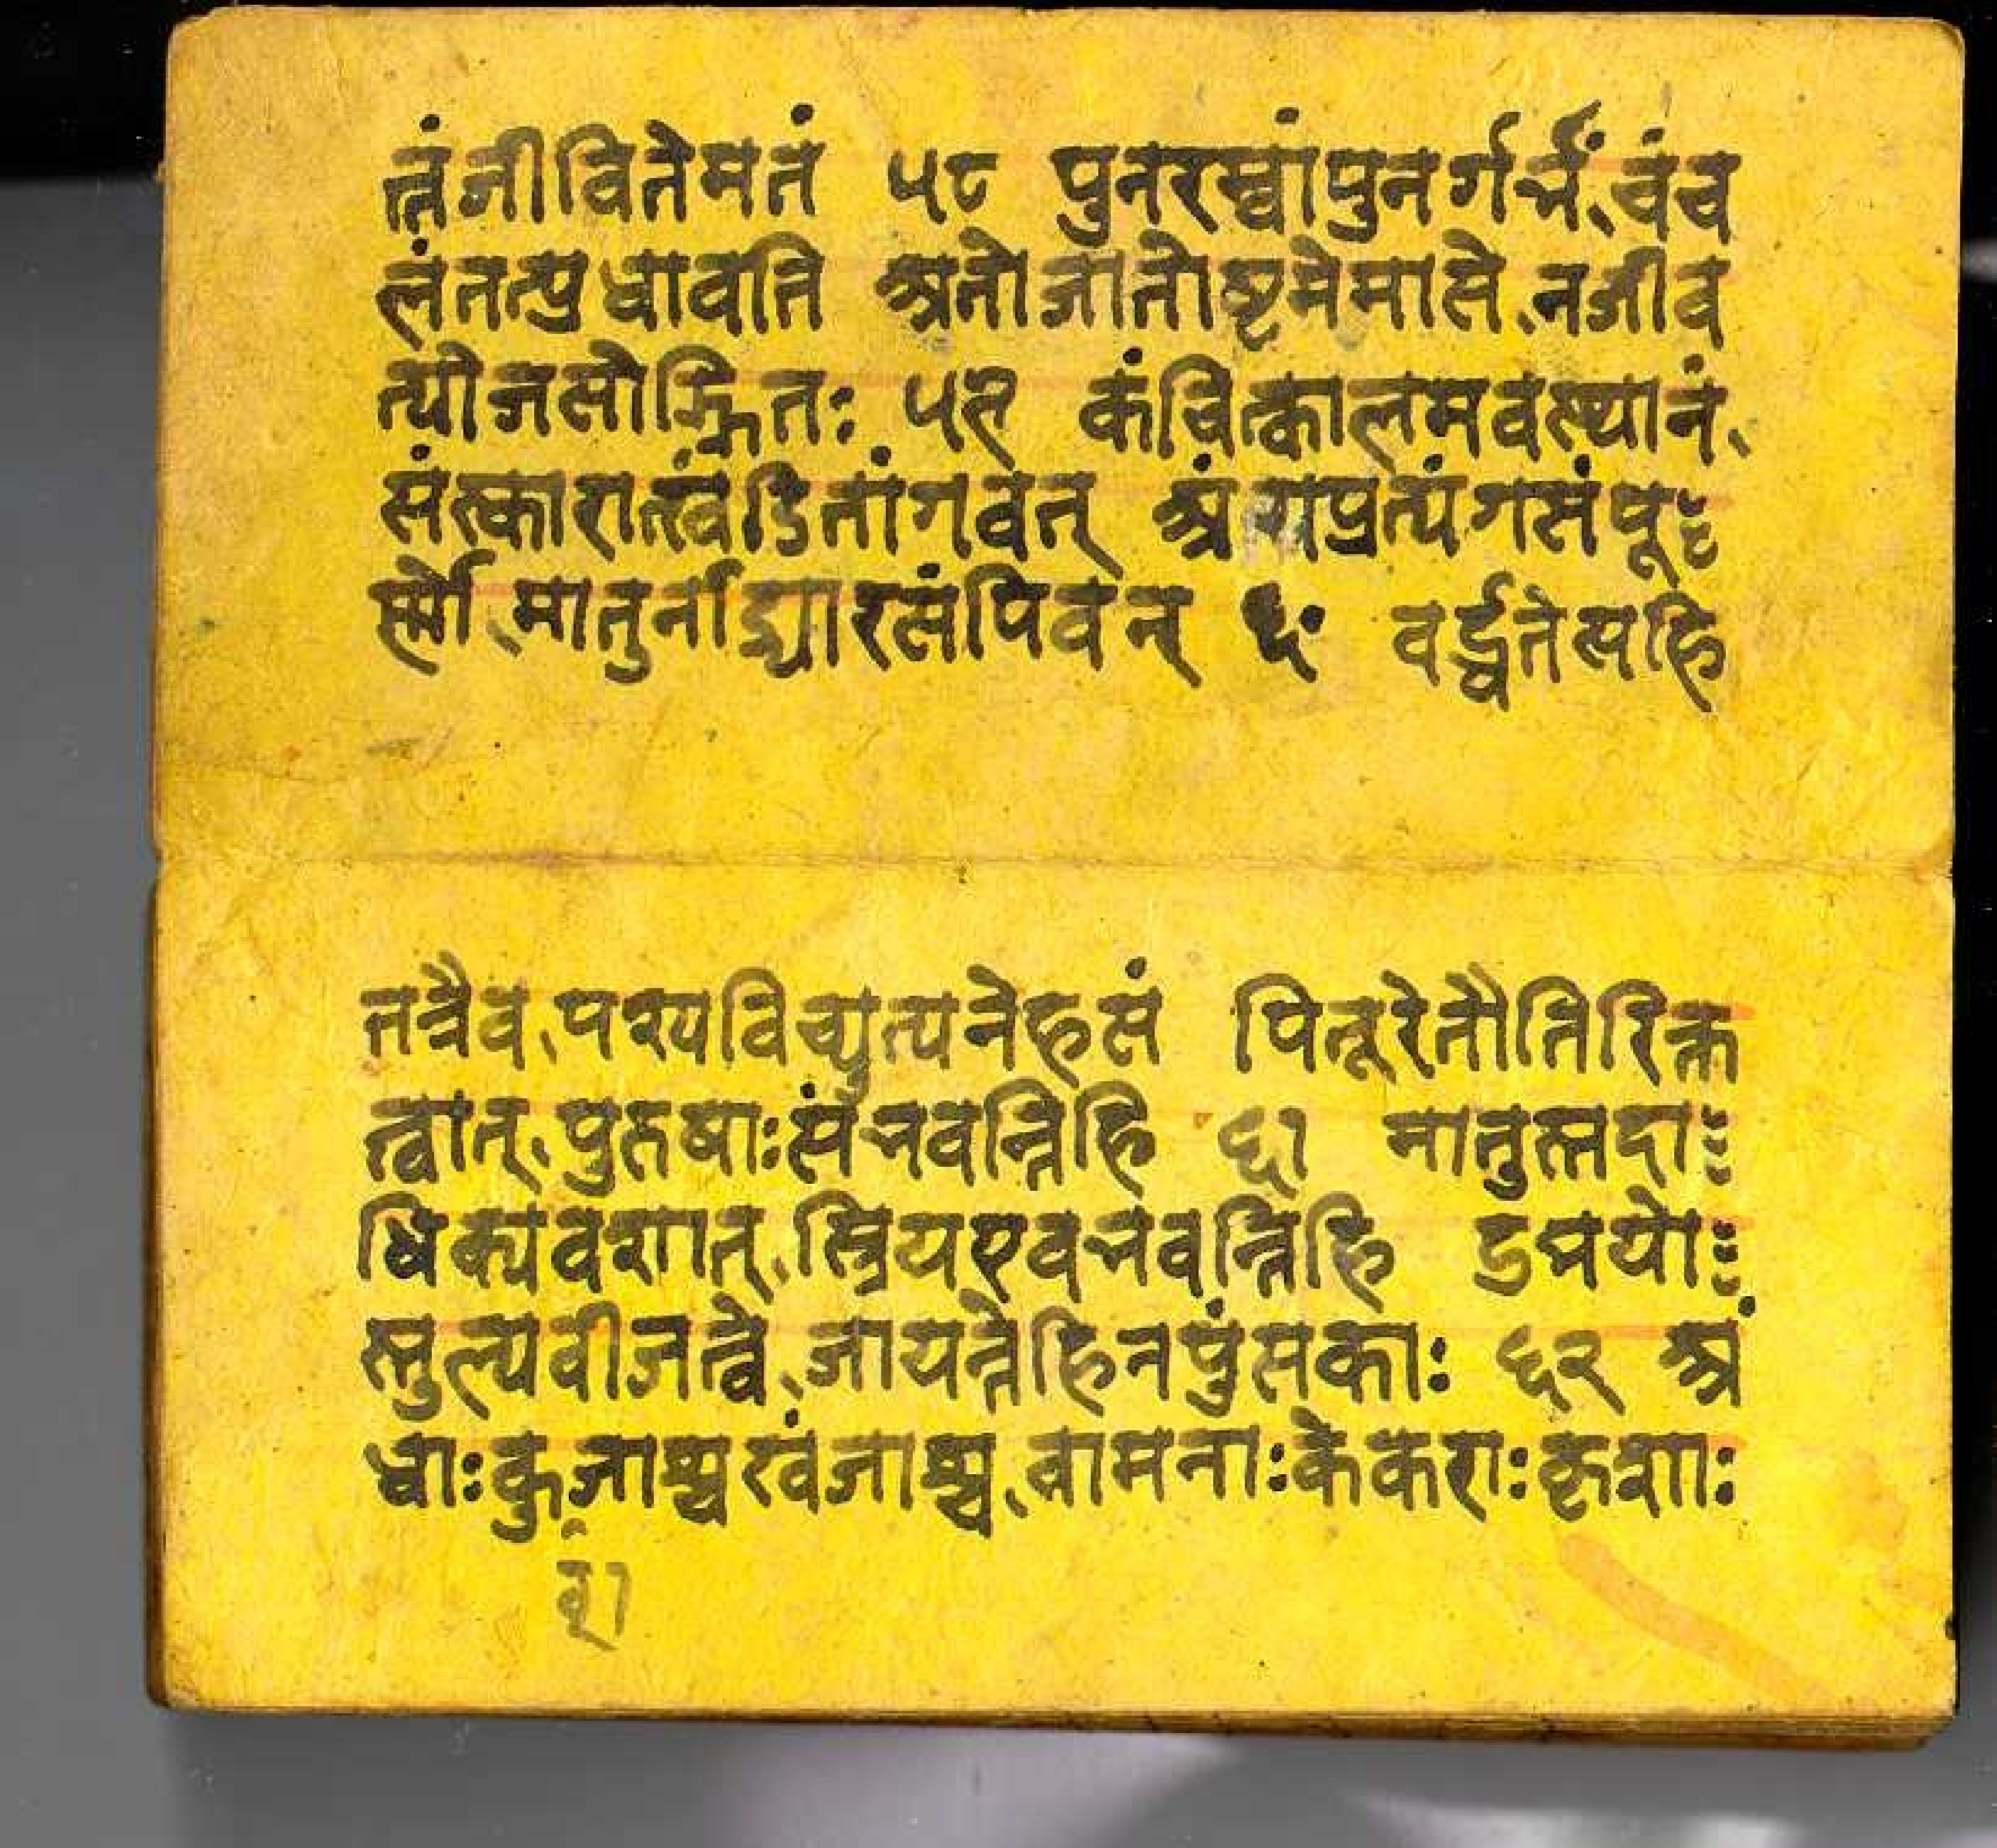 त्तंजीवितेमतं ५८ पुनरम्बांपुनर्गर्भं वंच
लंतत्प्रधावति अतोजातोष्टमेमासे नजीव
त्योजसोज्झितः ५९ कंचित्कालमवस्थानं
संस्कारात्खंडितांगवत् अंगप्रत्यंगसंपू
र्स्मो मातुर्नाड्यारसंपिवन् ६० वर्द्धतेसहि
तत्रैव पश्यविच्युत्यनेहसं पितूरेतोतिरिक्त
त्वात् पुरुषाःसंभवन्तिहि ६१ मातुस्तदा
धिक्यवशात् स्त्रियएवभवन्तिहि उभयोः
स्तुल्यवीजत्वे जायन्तेहिनपुंसकाः ६२ अं
धाःकुजाश्चखंजाश्च वामनाःकेकराःकृशाः